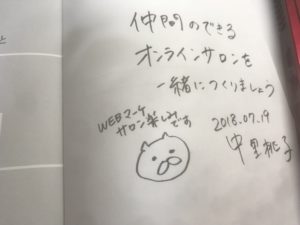 仲間のできる
オンラインサロンを
一緒につくりましょう
WEBマーケ
サロン楽しみです
2018.07.19
中里桃子